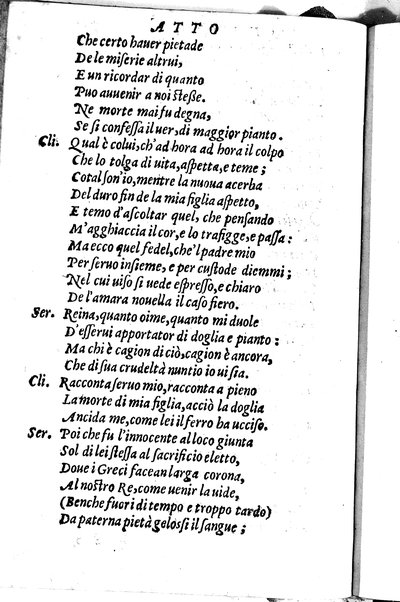 ATTO
Che certo hauer pietade
De le miserie altrui,
E un ricordar di quanto
Puo auuenir a noi stesse.
Ne morte mai fu degna,
Se si confessa il uer, di maggior pianto.
Cli. Qual è colui, ch'ad hora ad hora il colpo
Che lo tolga di uita, aspetta, e teme;
Cotal son'io, mentre la nuoua acerba
Del duro fin de la mia figlia aspetto,
E temo d'ascoltar quel, che pensando
M'agghiaccia il cor, e lo trafigge, e passa:
Ma ecco quel fedel, che'l padre mio
Per seruo insieme, e per custode diemmi;
Nel cui uiso si uede espresso, e chiaro
De l'amara nouella il caso fiero.
Ser. Reina, quanto oime, quanto mi duole
D'esserui apportator di doglia e pianto:
Ma chi è cagion di ciò, cagion è ancora,
Che di sua crudeltà nuntio io ui sia.
Cli. Racconta seruo mio, racconta a pieno
La morte di mia figlia, acciò la doglia
Ancida me, come lei il ferro ha ucciso.
Ser. Poi che fu l'innocente al loco giunta
Sol di lei stessa al sacrificio eletto,
Doue i Greci facean larga corona,
Al nostro Re, come uenir la uide,
(Benche fuori di tempo e troppo tardo)
Da paterna pietà gelossi il sangue;